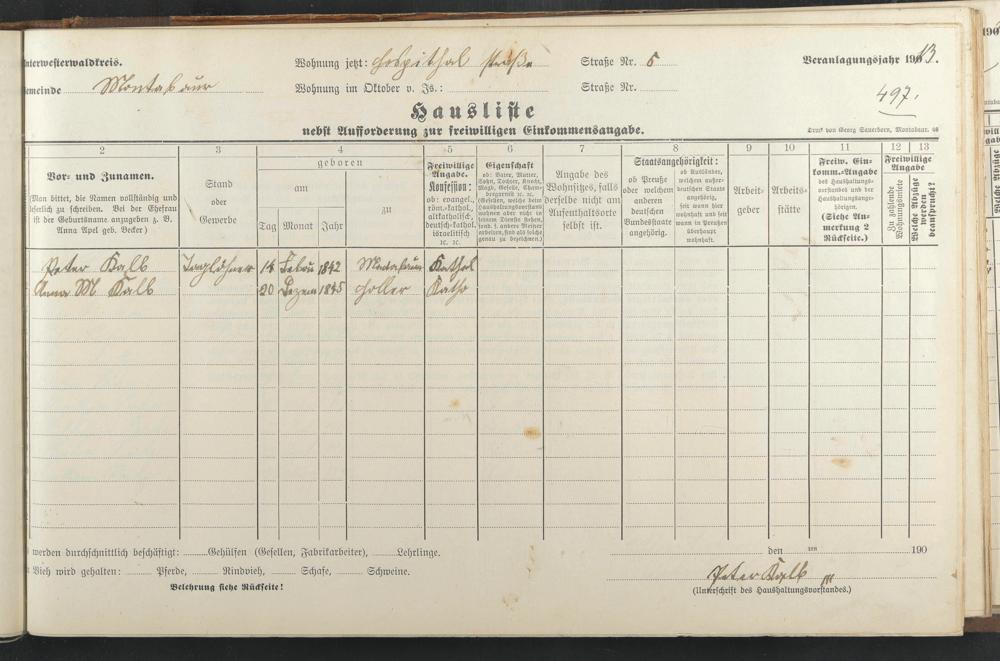 nterwesterwaldkreis. Wohnung jetzt: Hospithal straße Straße Nr. 5 Veranlagungsjahr 1913.
emeinde Montabaur Wohnung im Oktober v. Js.: Straße Nr.
497.
Hausliste
nebst Aufforderung zur freiwilligen Einkommensangabe.
Druck von Georg Sauerborn, Montabaur.
2 3 4 5 6 7 8 9 10 11 12 13
Vor- und Zunamen.
(Man bittet, die Namen vollständig und
leserlich zu schreiben. Bei der Ehefrau
ist der Geburtsname anzugeben z. B.
Anna Apel geb. Becker)
Stand
oder
Gewerbe
geboren
am
zu
Tag Monat Jahr
Freiwillige
Angabe.
Konfession:
ob: evangel.,
röm.-kathol.,
altkatholisch,
deutsch-kathol.
israelitisch
ꝛc. ꝛc.
Eigenschaft
ob: Vater, Mutter,
Sohn, Tochter, Knecht,
Magd, Geselle, Cham-
bregarnist ꝛc. ꝛc.
(Gesellen, welche beim
Haushaltungsvorstand
wohnen aber nicht in
seinem Dienste stehen,
sond. f. andere Meister
arbeiten, sind als solche
genau zu bezeichnen.)
Angabe des
Wohnsitzes, falls
derselbe nicht am
Aufenthaltsorte
selbst ist.
Staatsangehörigkeit:
ob Preuße
oder welchem
anderen
deutschen
Bundesstaate
angehörig.
ob Ausländer,
welchem außer-
deutschen Staate
angehörig,
seit wann hier
wohnhaft und seit
wann in Preußen
überhaupt
wohnhaft.
Arbeit-
geber
Arbeits-
stätte
Freiw. Ein-
komm.-Angabe
des Haushaltungs-
vorstandes und der
Haushaltungsange-
hörigen.
(Siehe An-
merkung 2
Rückseite.)
Freiwillige
Angabe
Zu zahlende
Wohnungsmiete
Welche Abzüge
werden
beansprucht?
Peter Kalb Taglöhner 14 Febru 1842 Montabaur Kathol
Anna M Kalb 20 Dezem 1845 Holler Katho
werden durchschnittlich beschäftigt: Gehülfen (Gesellen, Fabrikarbeiter), Lehrlinge.
Vieh wird gehalten: Pferde, Rindvieh, Schafe, Schweine.
Belehrung siehe Rückseite!
den ten 190
Peter Kalb
(Unterschrift des Haushaltungsvorstandes.)